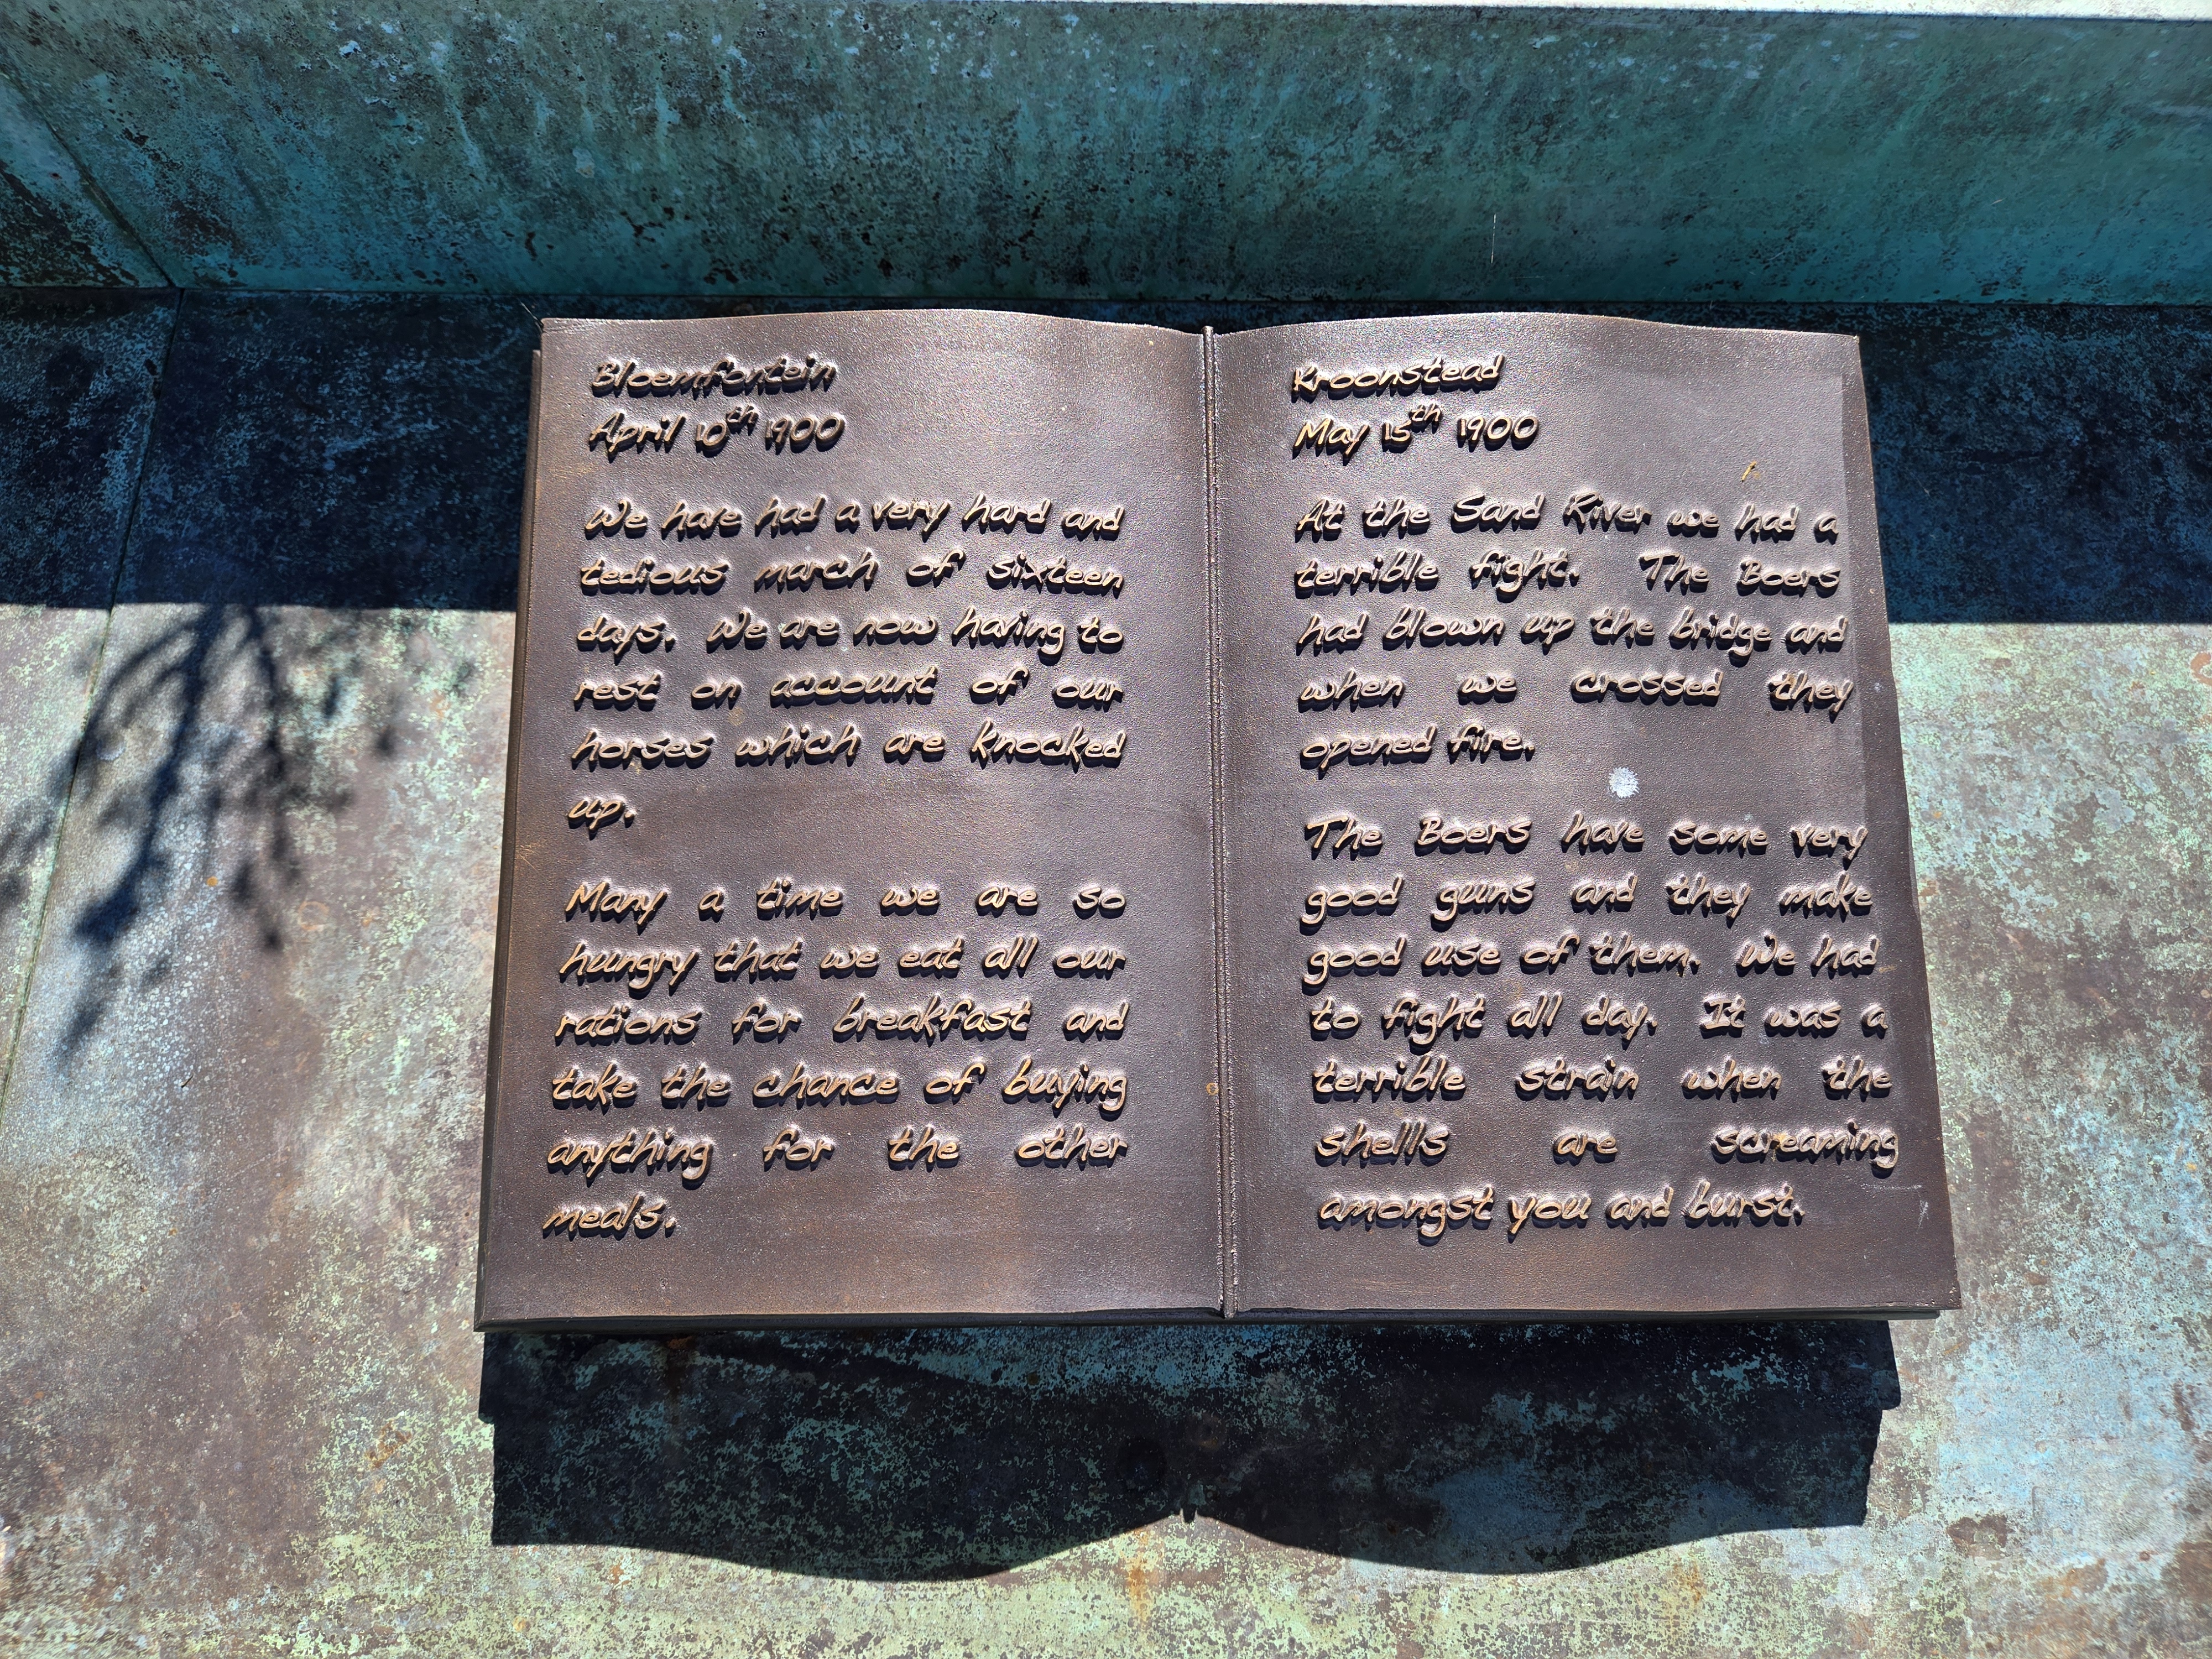 Bloemfontein
April 10th 1900
We have had a very hard and
tedious march of sixteen
days. We are now having to
rest on account of our
horses which are knocked
up.
Many a time we are so
hungry that we eat all our
rations for breakfast and
take the chance of buying
anything for the other
meals.
Kroonstead
May 15th 1900
At the Sand River we had a
terrible fight. The Boers
had blown up the bridge and
when we crossed they
opened fire.
The Boers have some very
good guns and they make
good use of them. We had
to fight all day. It was a
terrible strain when the
shells are screaming
amongst you and burst.